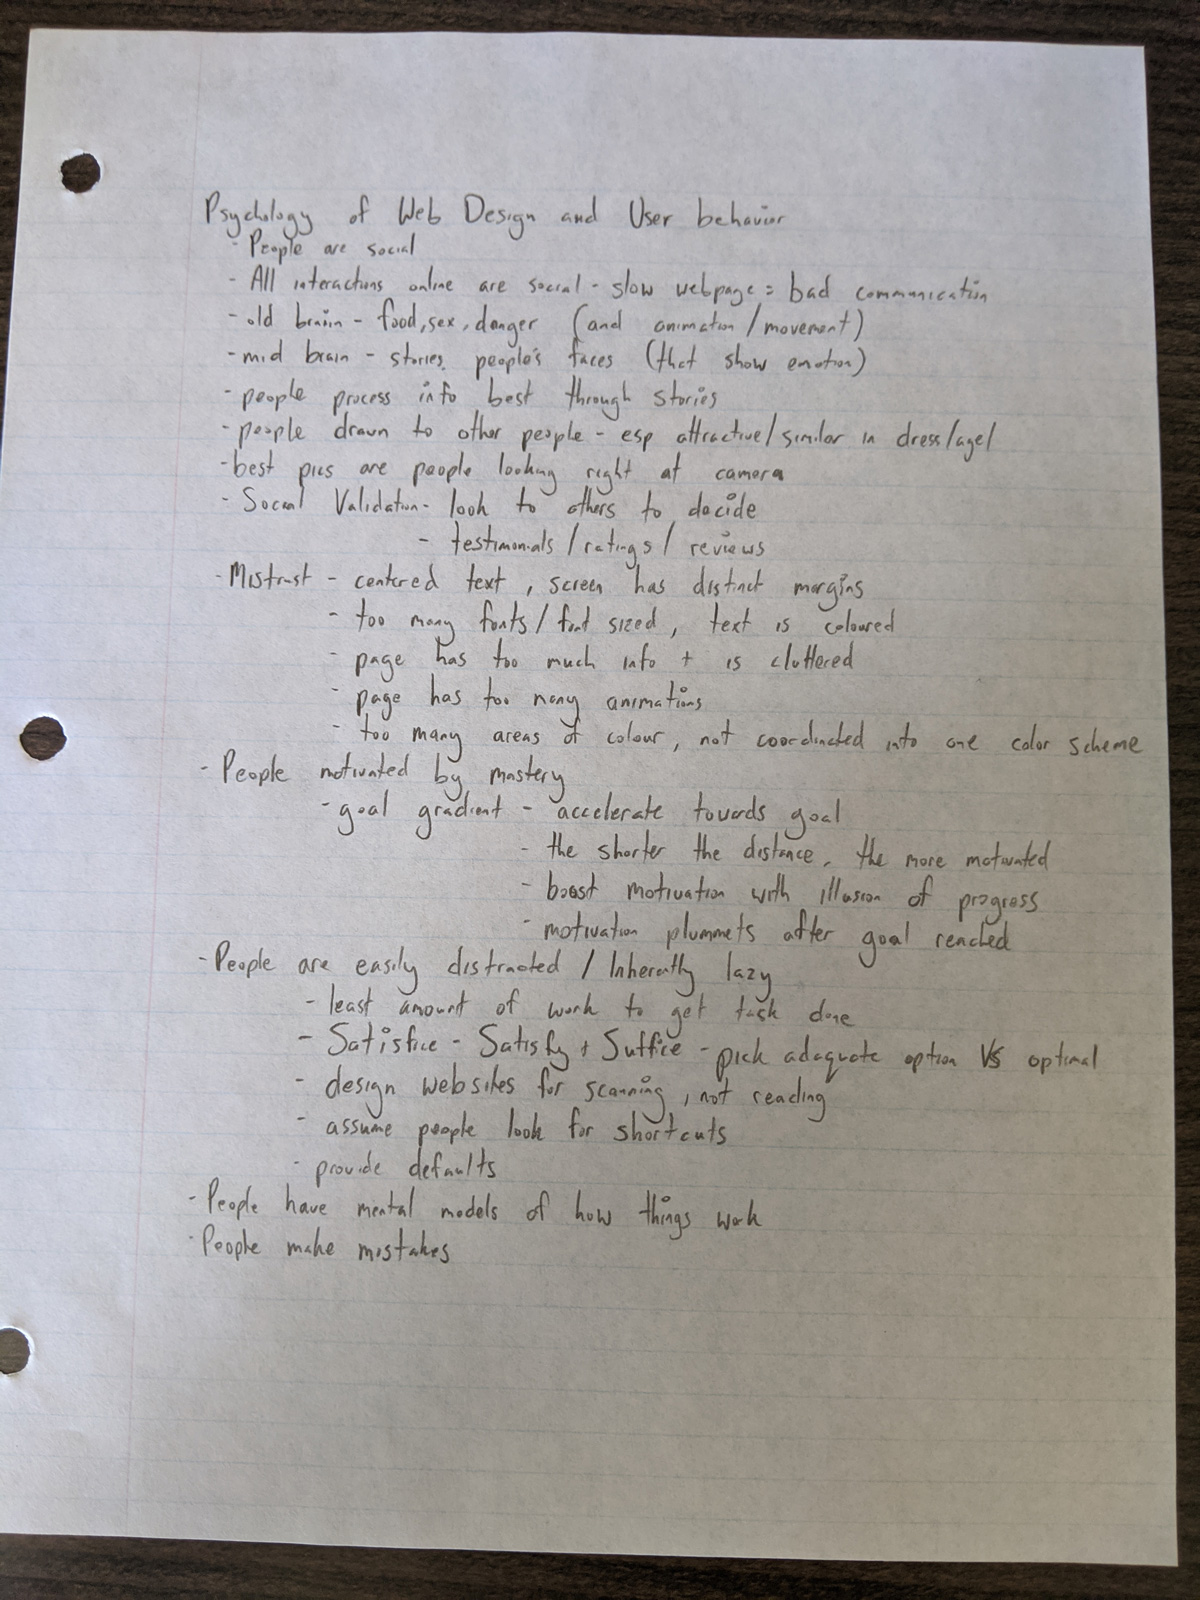 Psychology of Web Design and User behavior
- People are social
- All interactions online are social - slow webpage = bad communication
- old brain - food, sex, danger (and animation/movement)
- mid brain - stories, people's faces (that show emotion)
- people process info best through stories
- people drawn to other people - esp attractive/similar in dress/age/
- best pics are people looking right at camera
- Social Validation - look to others to decide
- testimonials/ratings/reviews
- Mistrust - centered text, screen has distinct margins
- too many fonts/font sized, text is coloured
- page has too much info + is cluttered
- page has too many animations
- too many areas of colour, not coordinated into one color scheme
- People motivated by mastery
- goal gradient - accelerate towards goal
- the shorter the distance, the more motivated
- boost motivation with illusion of progress
- motivation plummets after goal reached
- People are easily distracted / Inherently lazy
- least amount of work to get task done
- Satisfice - Satisfy + Suffice - pick adequate option VS optimal
- design websites for scanning, not reading
- assume people look for shortcuts
- provide defaults
- People have mental models of how things work
- People make mistakes